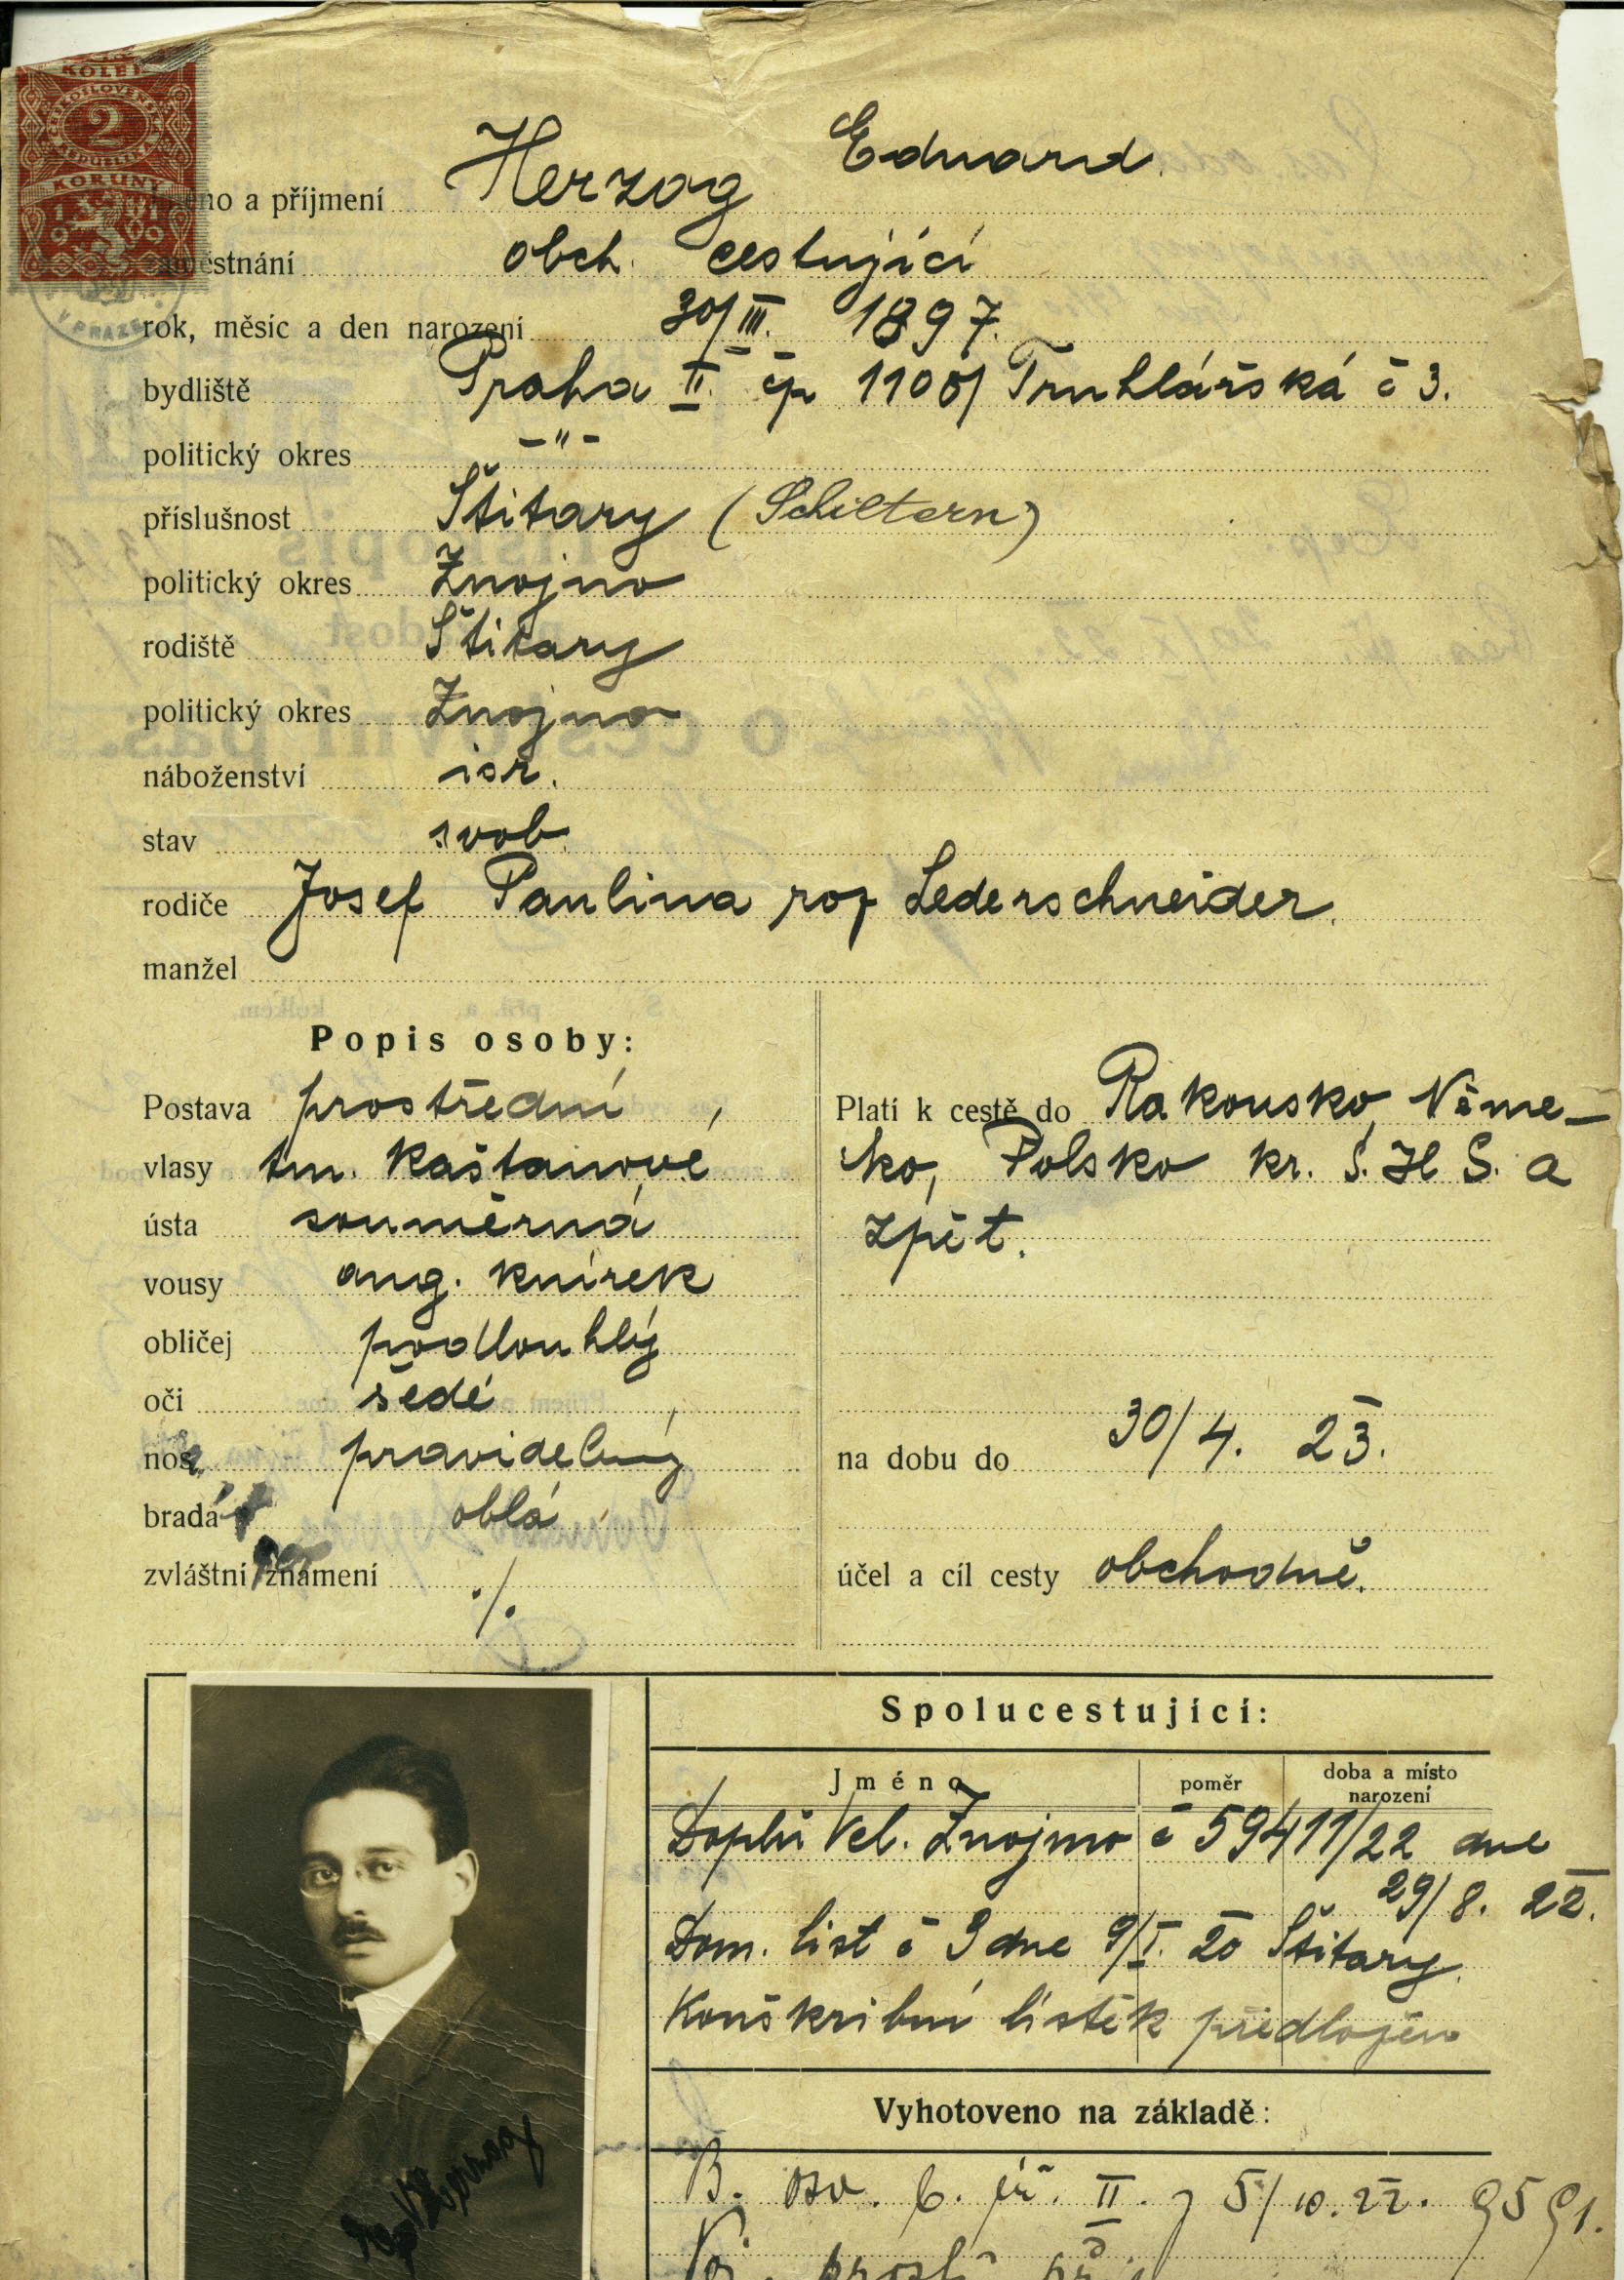 2
KORUNY
V PRAZE
a příjmení Herzog Eduard
obch. cestující
rok, měsíc a den narození 30/III. 1897.
bydliště Praha II. čp 1100/ Truhlářská č 3.
politický okres —"—
příslušnost Štitary (Schiltern)
politický okres Znojmo
rodiště Štitary
politický okres Znojmo
náboženství isr.
stav svob.
rodiče Josef Paulina roz Lederschneider.
manžel
Popis osoby:
Postava prostřední,
vlasy tm. kaštanové
ústa souměrná
vousy ang. knírek
obličej podlouhlý
oči šedé
nos pravidelný
brada oblá
zvláštní znamení ./.
Platí k cestě do Rakousko, Něme-
cko, Polsko kr. S. H S. a
zpět.
na dobu do 30/4. 23.
účel a cíl cesty obchodně.
Spolucestující:
Jméno poměr doba a místo narození
Vel. Znojmo č 59411/22 dne
29/8. 22.
Dom. list č 9 dne 9/I. 20 Štitary.
Konškribní lístek předložen
Vyhotoveno na základě:
B. osv. II. z 5/10. 22. 9591.